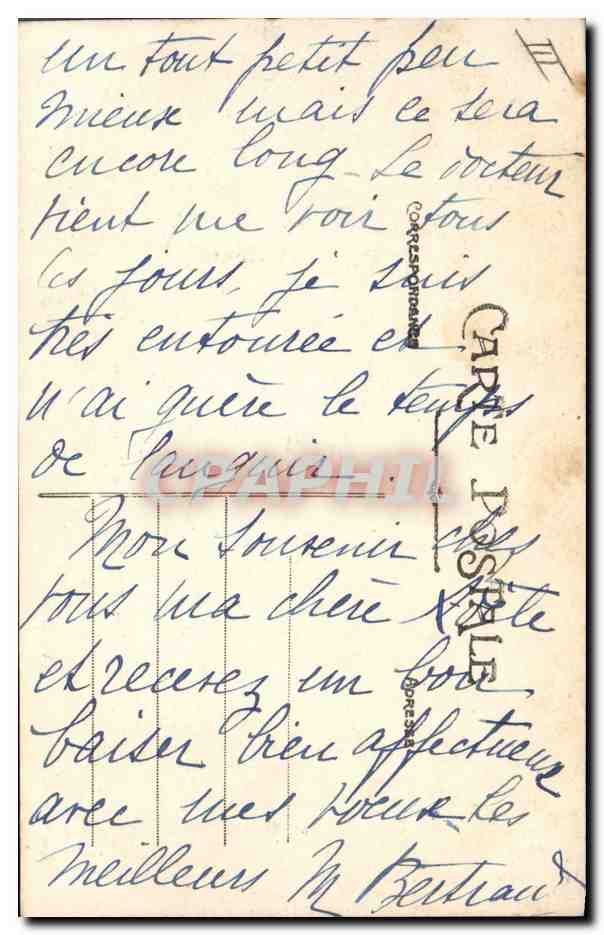 III
un tout petit peu
mieux mais ce sera
encore long. Le docteur
vient me voir tous
les jours, je suis
très entourée et
n'ai guère le temps
de languir.
Mon souvenir chez
vous ma chère
et recevez un bon
baiser bien affectueux
avec mes voeux les
meilleurs M Bertrand
CARTE POSTALE
CORRESPONDANCE
ADRESSE
CPAPHIL